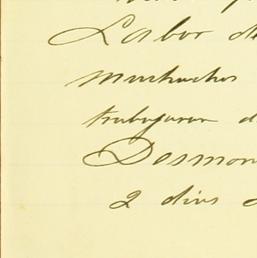 Labor de
muchachos
trabajaron d
Desmon
2 dias